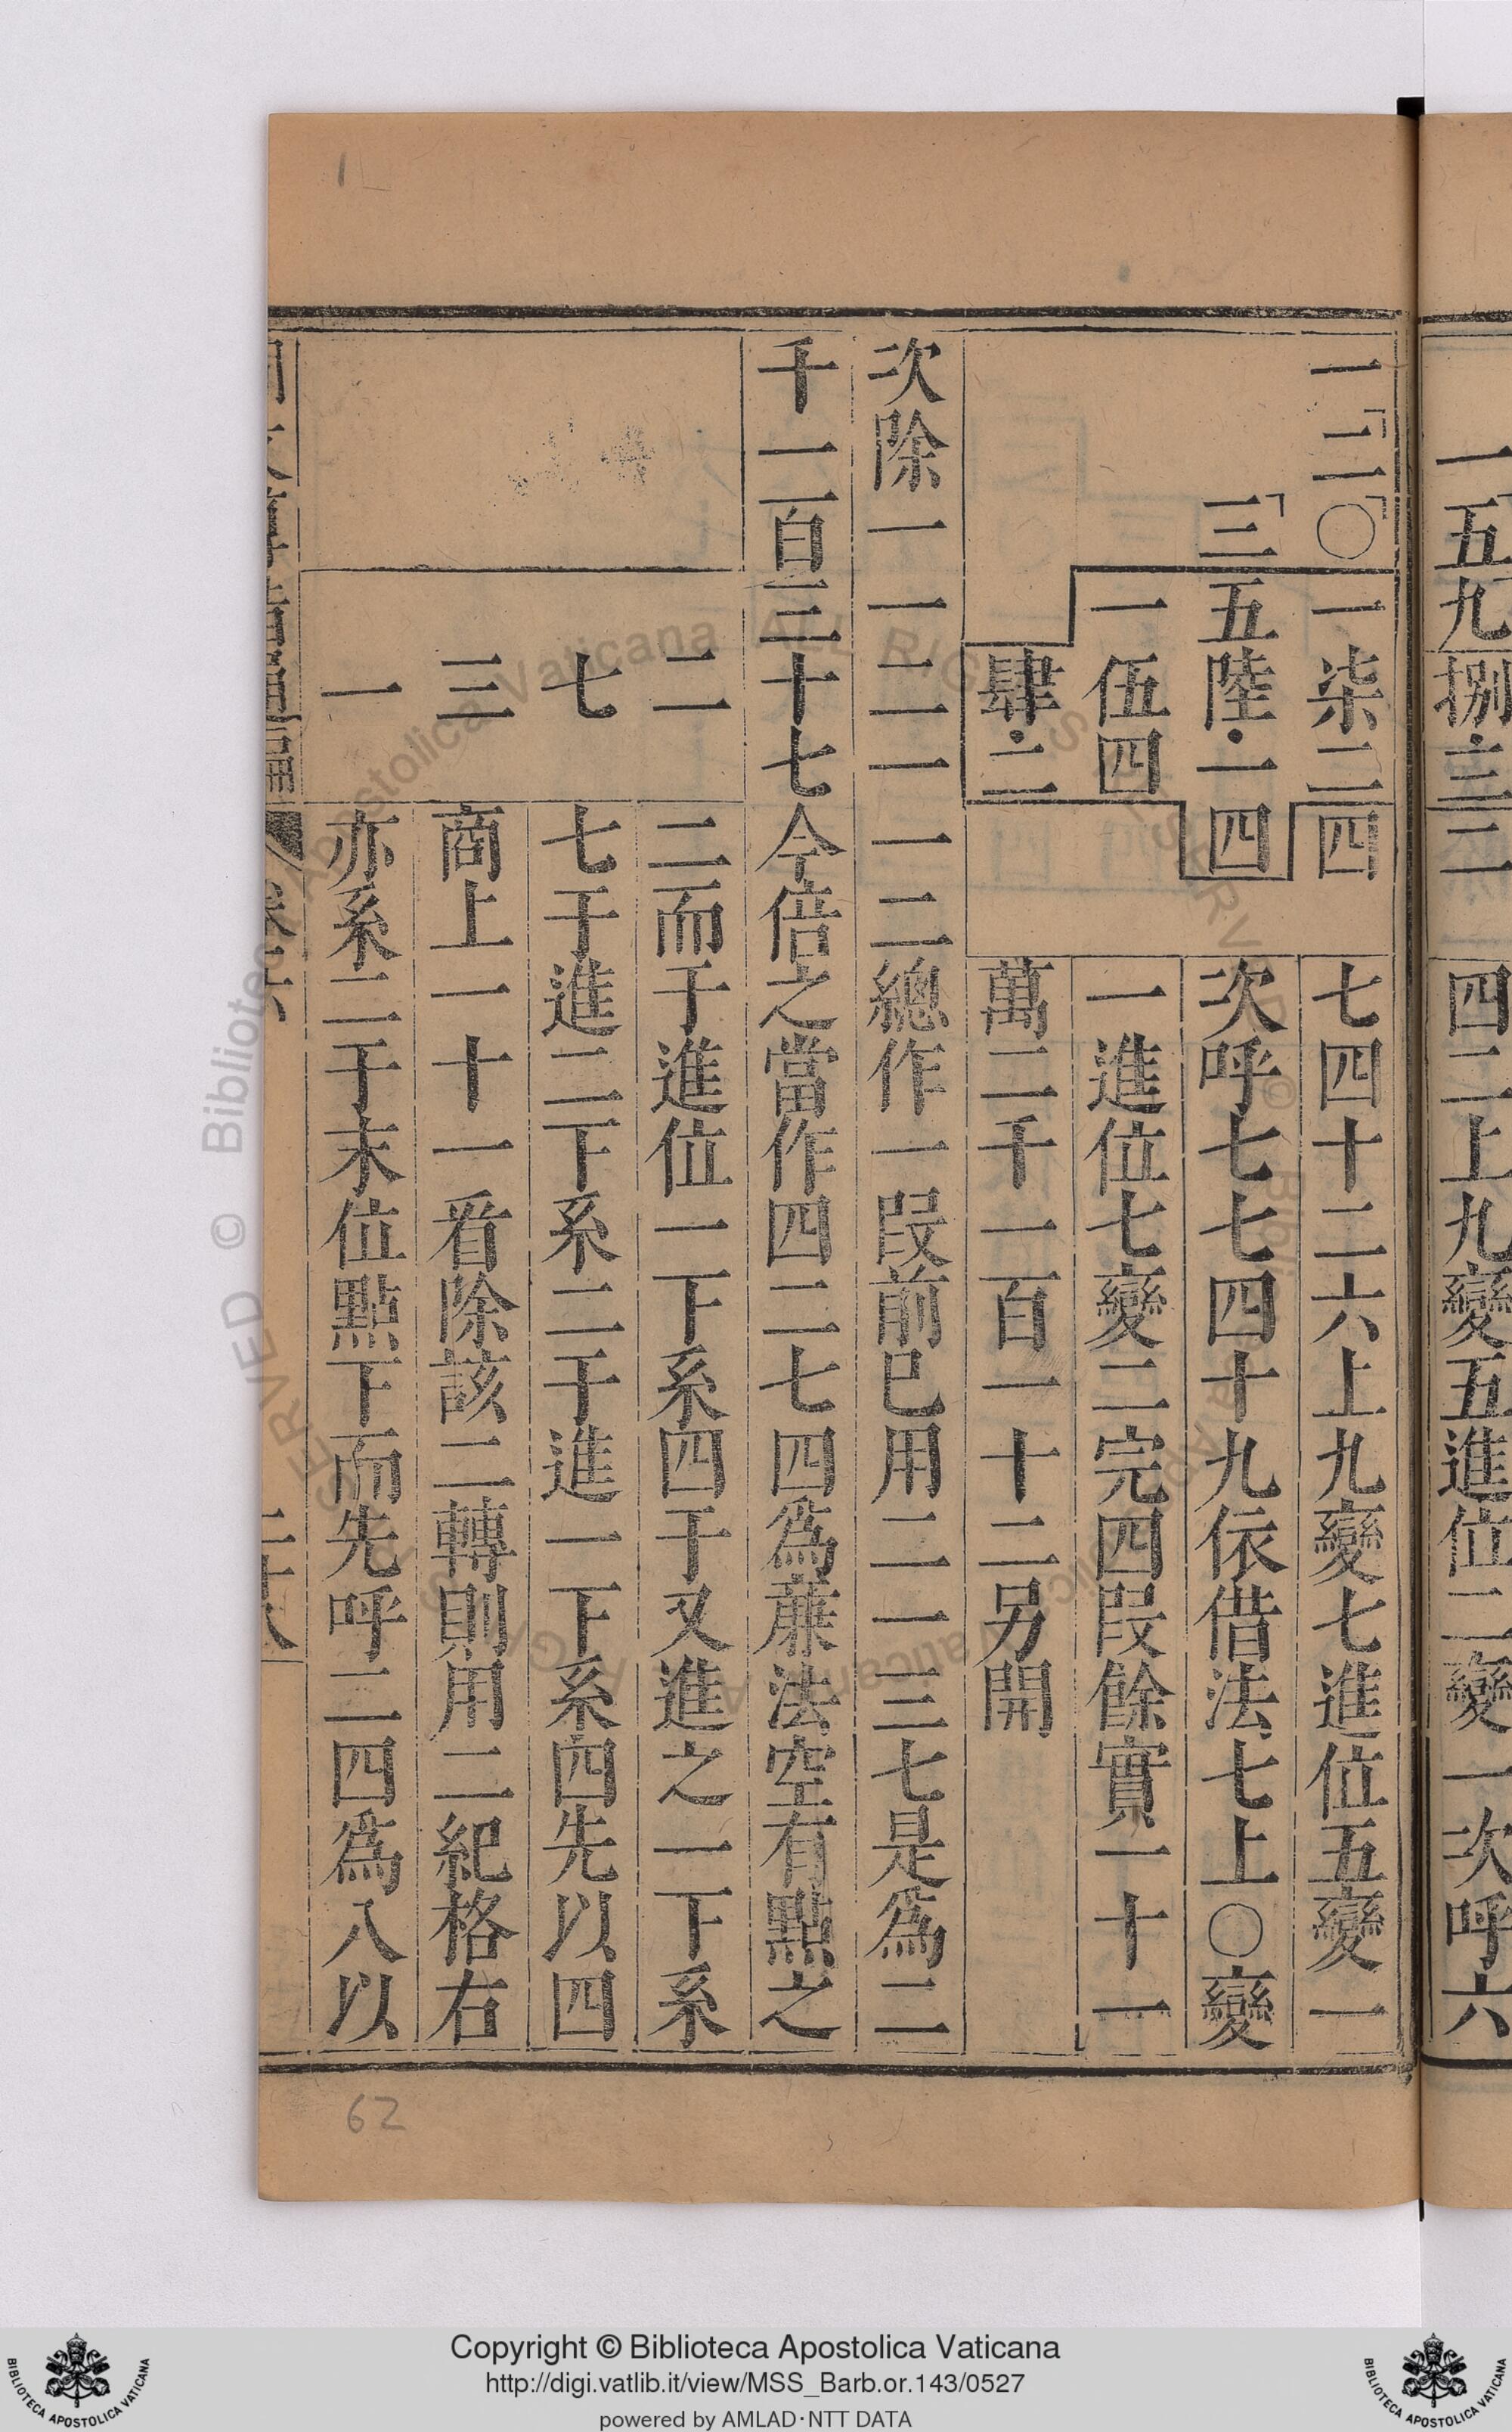 一五九捌三二四二上九變五進位二變一次呼六
一二〇一柒二四七四十二六上九變七進位五變一
三五陸一四次呼七七四十九依借法七上〇變
一伍四一進位七變二完四段餘實一十一
肆二萬二千一百一十二另開
次除一一二一一二總作一段前已用二一三七是為二
千一百三十七今倍之當作四二七四為亷法空有點之
二二而于進位一下系四于又進之一下系
七七于進二下系二于進一下系四先以四
三商上一十一看除該二轉則用二紀格右
一亦系二于末位點下而先呼二四為八以
62
© Biblioteca Apostolica Vaticana ALL RIGHTS RESERVED
Copyright © Biblioteca Apostolica Vaticana
http://digi.vatlib.it/view/MSS_Barb.or.143/0527
powered by AMLAD·NTT DATA
BIBLIOTECA APOSTOLICA VATICANA
BIBLIOTECA APOSTOLICA VATICANA